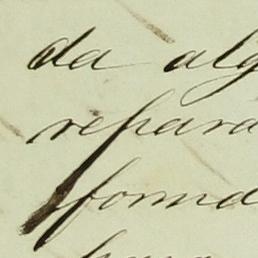 da alg
repara
forma